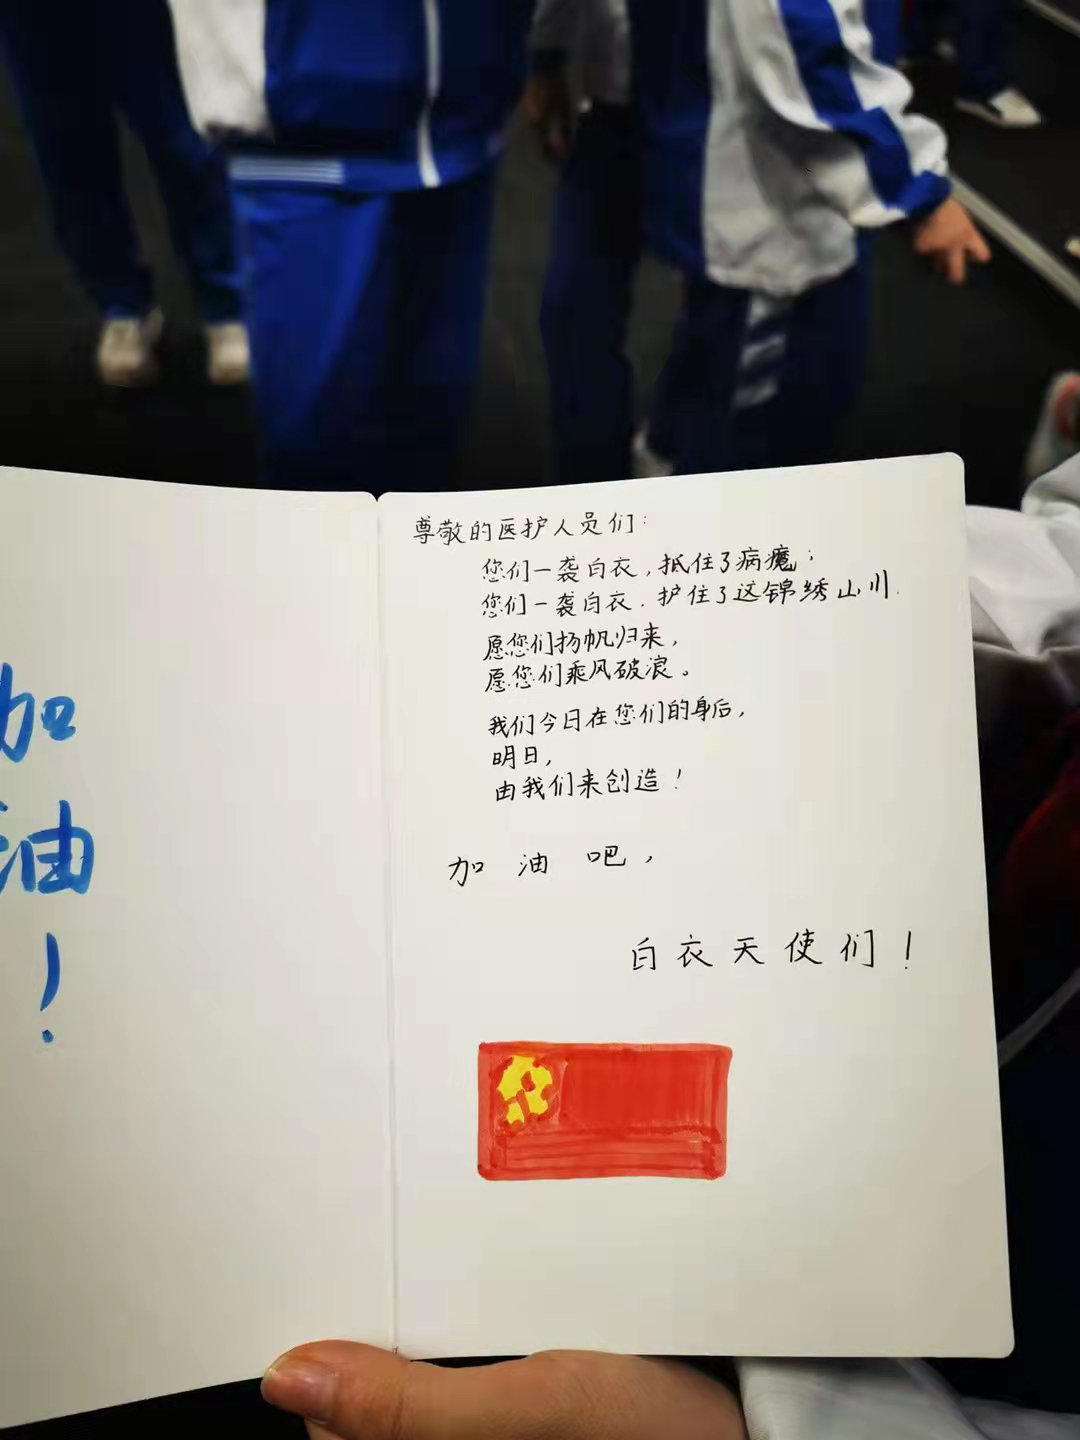 加
油
！
尊敬的医护人员们：
您们一袭白衣，抵住了病魔；
您们一袭白衣，护住了这锦绣山川.
愿您们扬帆归来，
愿您们乘风破浪。
我们今日在您们的身后，
明日，
由我们来创造！
加油吧，
白衣天使们！